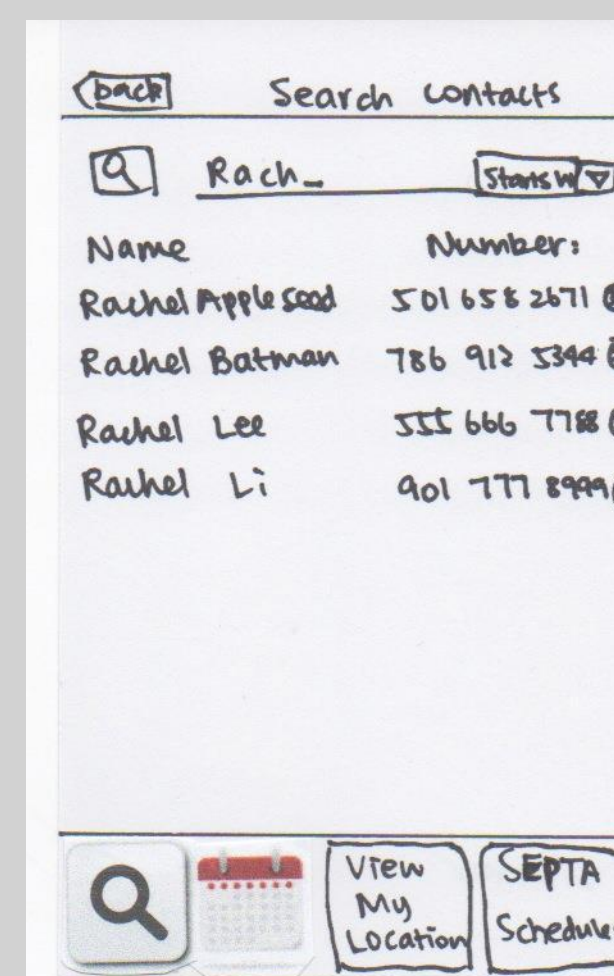 back Search contacts
Rach_ Starts w
Name Number:
Rachel Appleseed 501 658 2671
Rachel Batman 786 912 5344
Rachel Lee 555 666 7788
Rachel Li 901 777 8999
View My Location
SEPTA Schedule